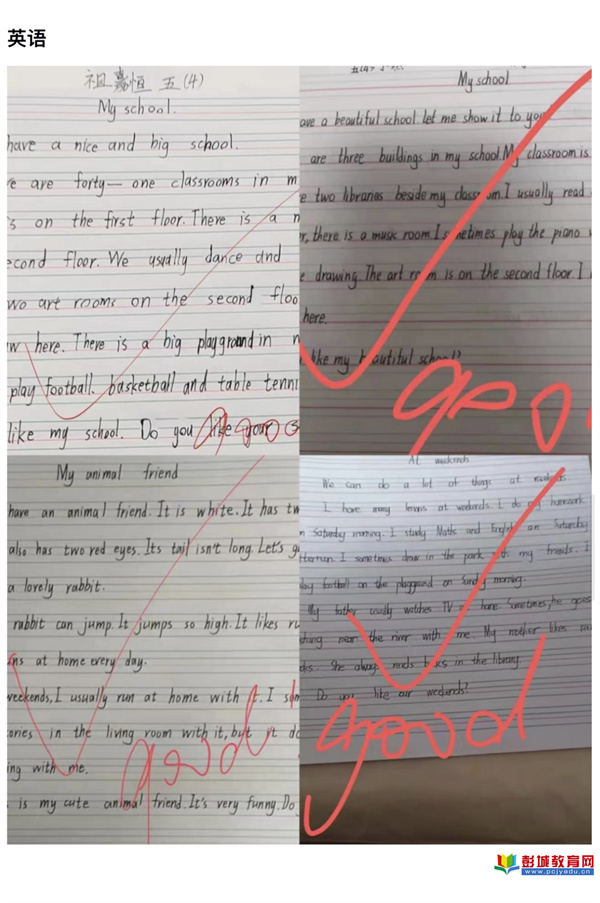 英语
祖嘉恒 五(4)
My school.
have a nice and big school.
re are forty—one classrooms in m
s on the first floor. There is a m
econd floor. We usually dance and
wo art rooms on the second floo
w here. There is a big playground in m
play football. basketball and table tenni
like my school. Do you like your s
good
My school
ave a beautiful school let me show it to you!
are three buildings in my school. My classroom is
e two libraries beside my classroom. I usually read
r, there is a music room. I sometimes play the piano
e drawing. The art room is on the second floor. I
here.
like my beautiful school?
good
My animal friend
have an animal friend. It is white. It has tw
also has two red eyes. Its tail isn't long. Let's g
a lovely rabbit.
rabbit can jump. It jumps so high. It likes ru
ns at home every day.
weekends, I usually run at home with it. I som
ories in the living room with it, but it do
ing with me.
is my cute animal friend. It's very funny. Do
good
At weekends
We can do a lot of things at weekends.
I have many lessons at weekends. I do my homework
n Saturday morning. I study Maths and English on Saturday
fternoon. I sometimes draw in the park with my friends. I
lay football on the playground on Sundy morning.
My father usually watches TV at home. Sometimes, he goes
shing near the river with me. My mother likes
oks. She always reads books in the library.
Do you like our weekends?
good
彭城教育网
www.pcjyedu.cn